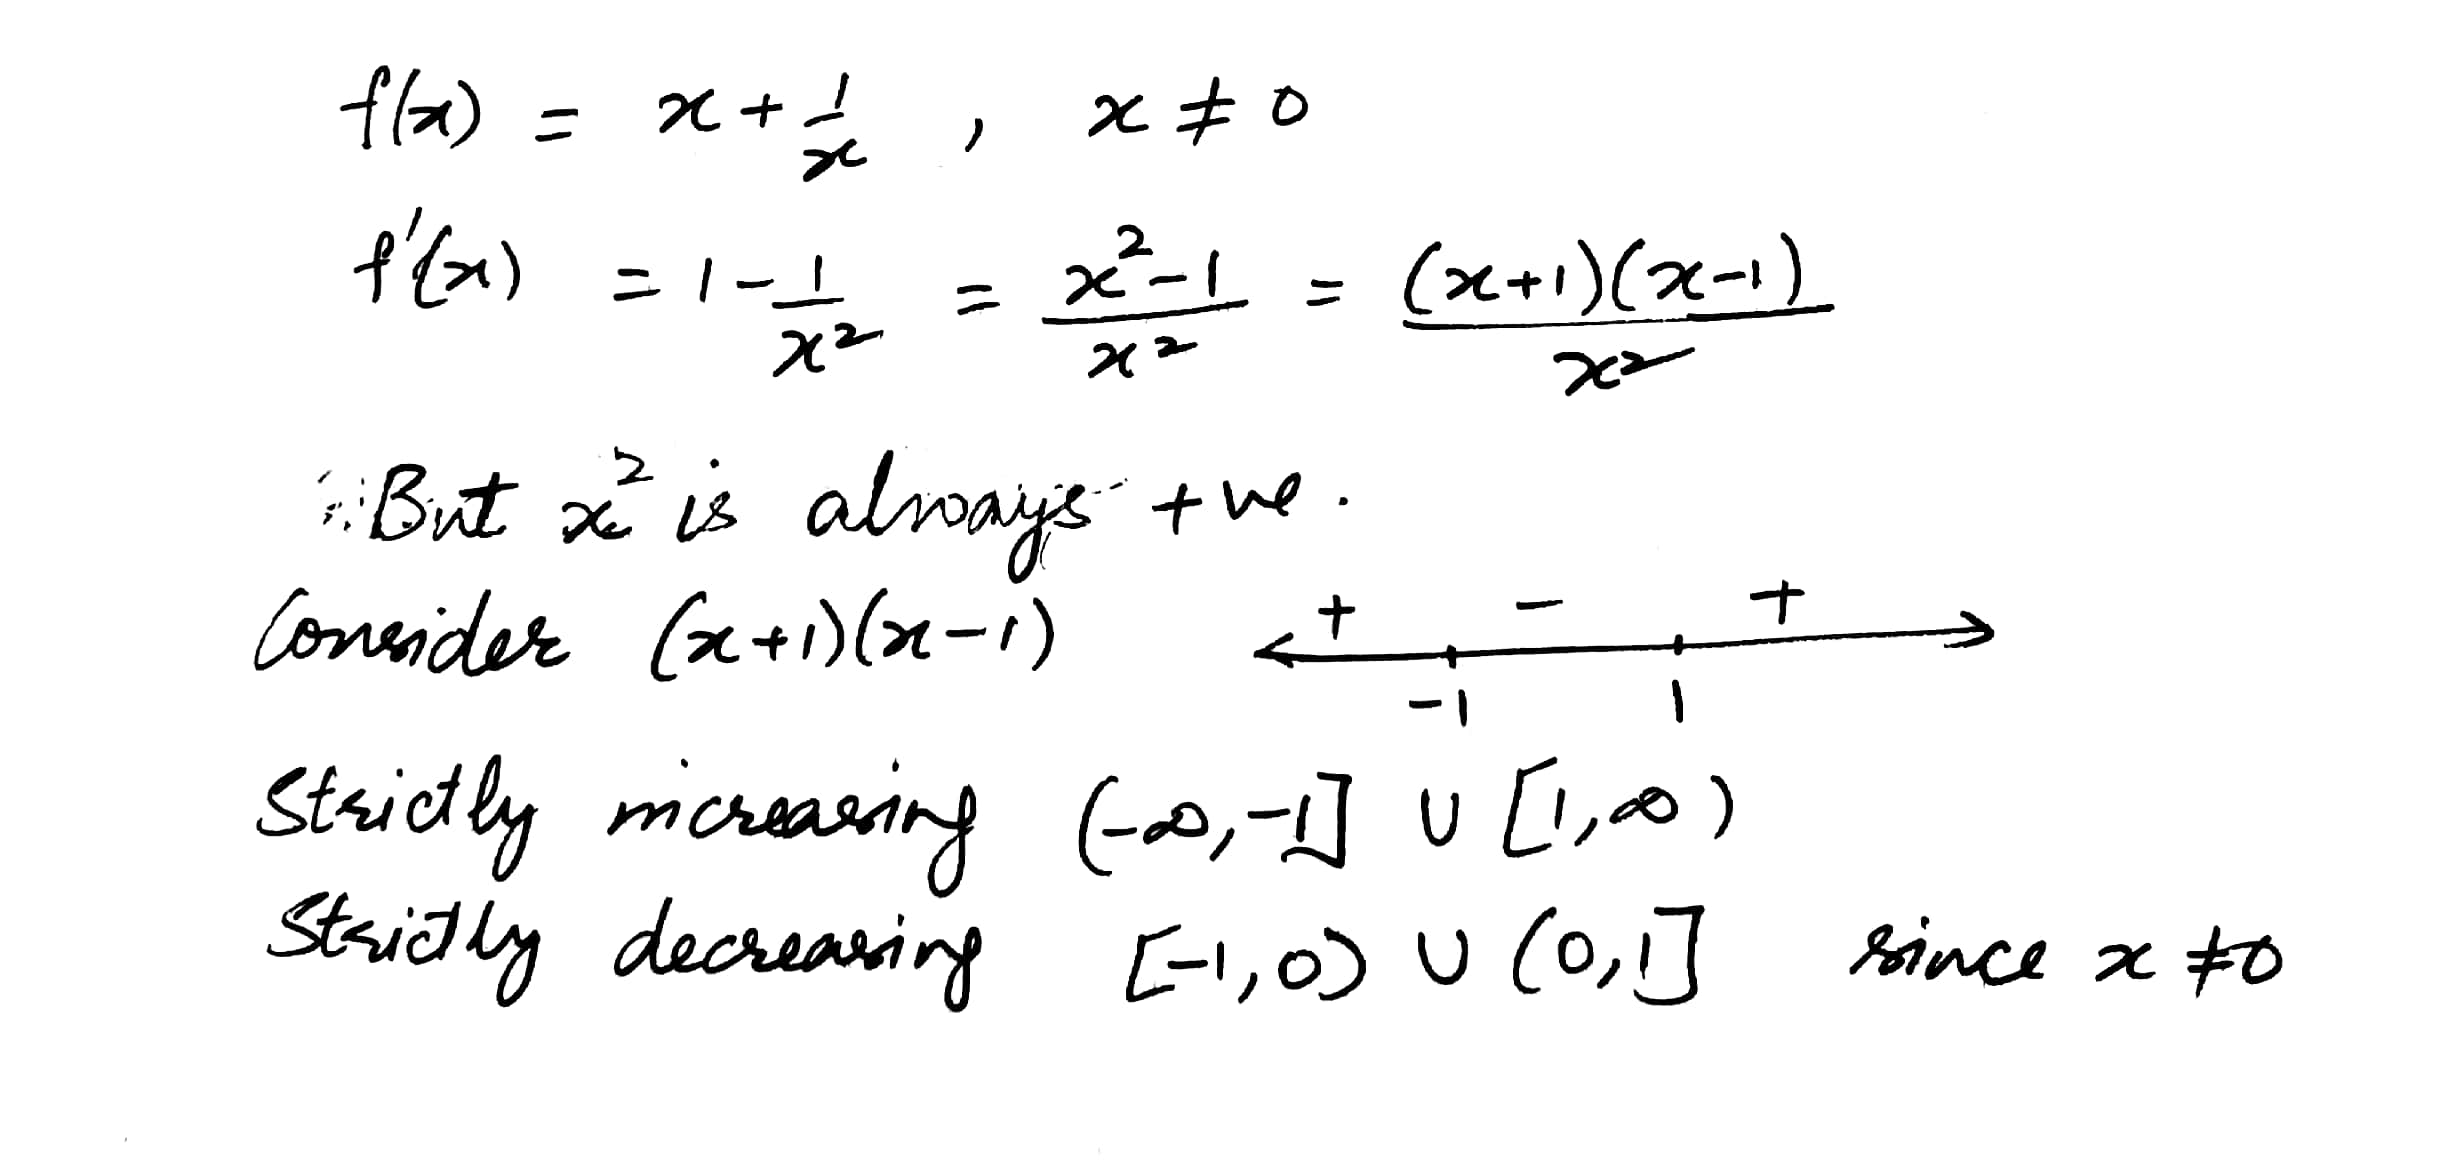 f(x) = x + 1/x , x ≠ 0
f'(x) = 1 - 1/x² = (x²-1)/x² = ((x+1)(x-1))/x²
But x² is always +ve.
Consider (x+1)(x-1) + - + -1 1
Strictly increasing (-∞,-1] ∪ [1,∞)
Strictly decreasing [-1,0) ∪ (0,1] since x ≠ 0